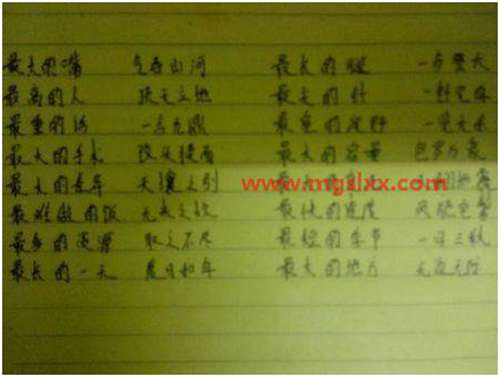 最大的嘴 气吞山河 最长的腿 一步登天
最高的人 顶天立地 最大的针 一针见血
最重的话 一言九鼎 最宽的视野 一览无余
最大的手术 改头换面 最大的容量 包罗万象
最大的差异 天壤之别 最大的
www.mgslxx.com
最难做的饭 无米之炊 最快的速度 风驰电掣
最多的 取之不尽 最短的季节 一日三秋
最长的一天 度日如年 最大的地方 无边无际